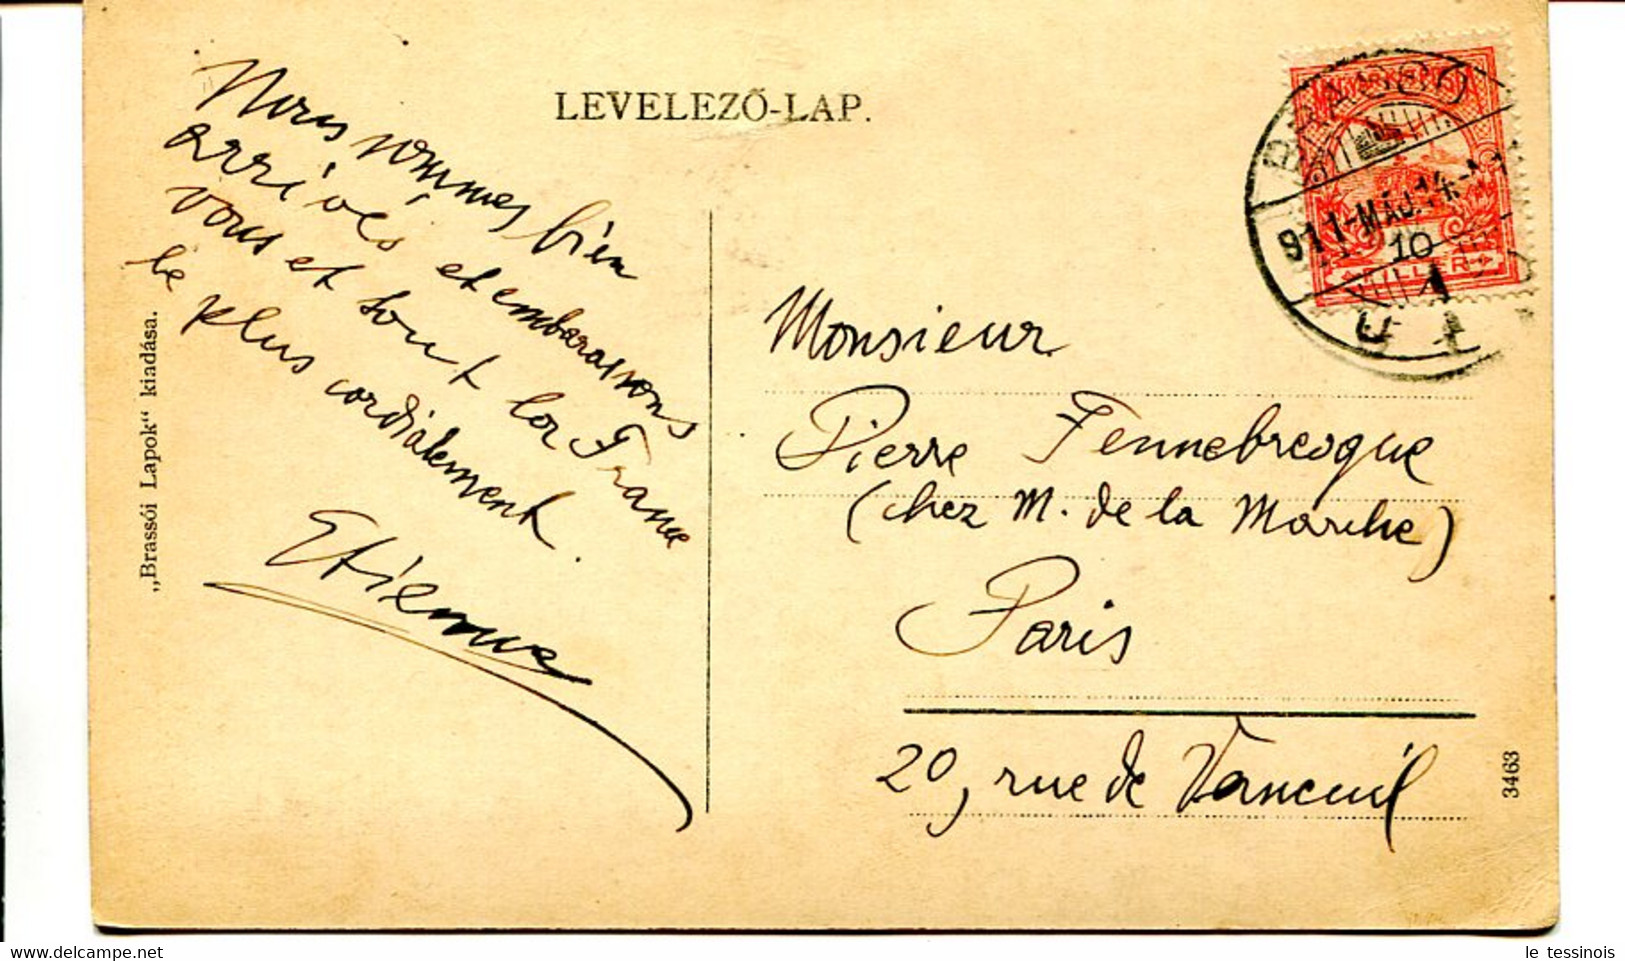 LEVELEZŐ-LAP.
Nous sommes bien
arrivés et embrassons
vous et tout la France
le plus cordialement.
Etienne
„Brassói Lapok“ kiadása.
BRASSÓ
911-MÁJ.14
10
FILLÉR
Monsieur
Pierre Fennebresque
(chez M. de la Marche)
Paris
20, rue de Vaneuil
3463
le tessinois